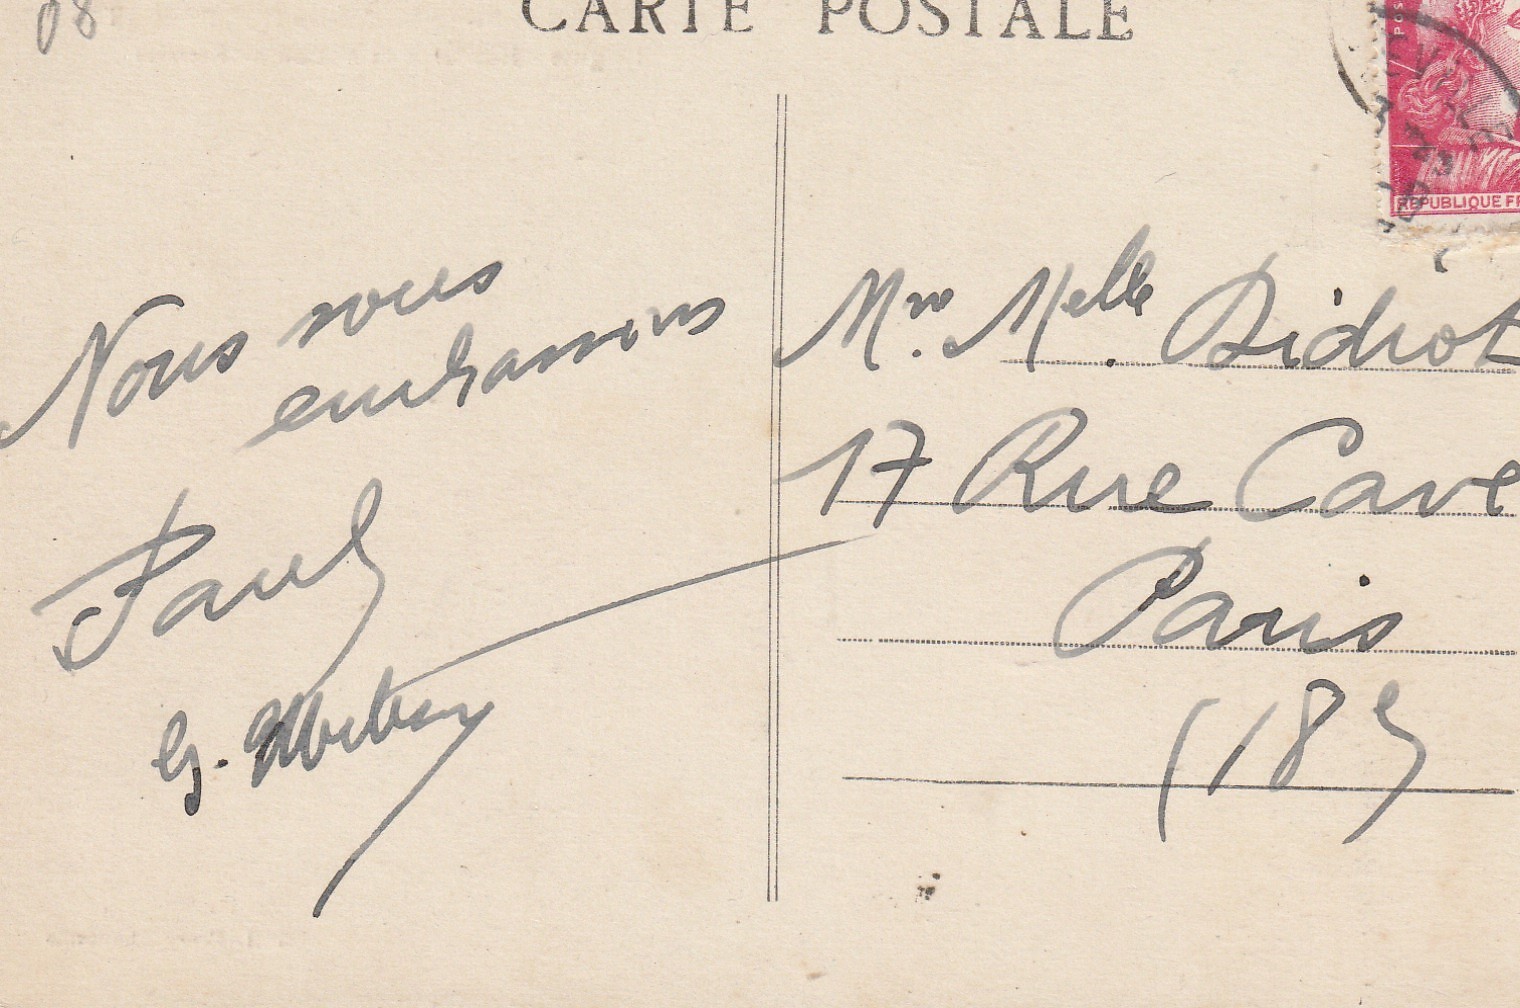 08
CARTE POSTALE
REPUBLIQUE FR
Nous vous
embrassons
Paul
G.
Mme. Melle. Didrot
17 Rue Cave
Paris
(18e)